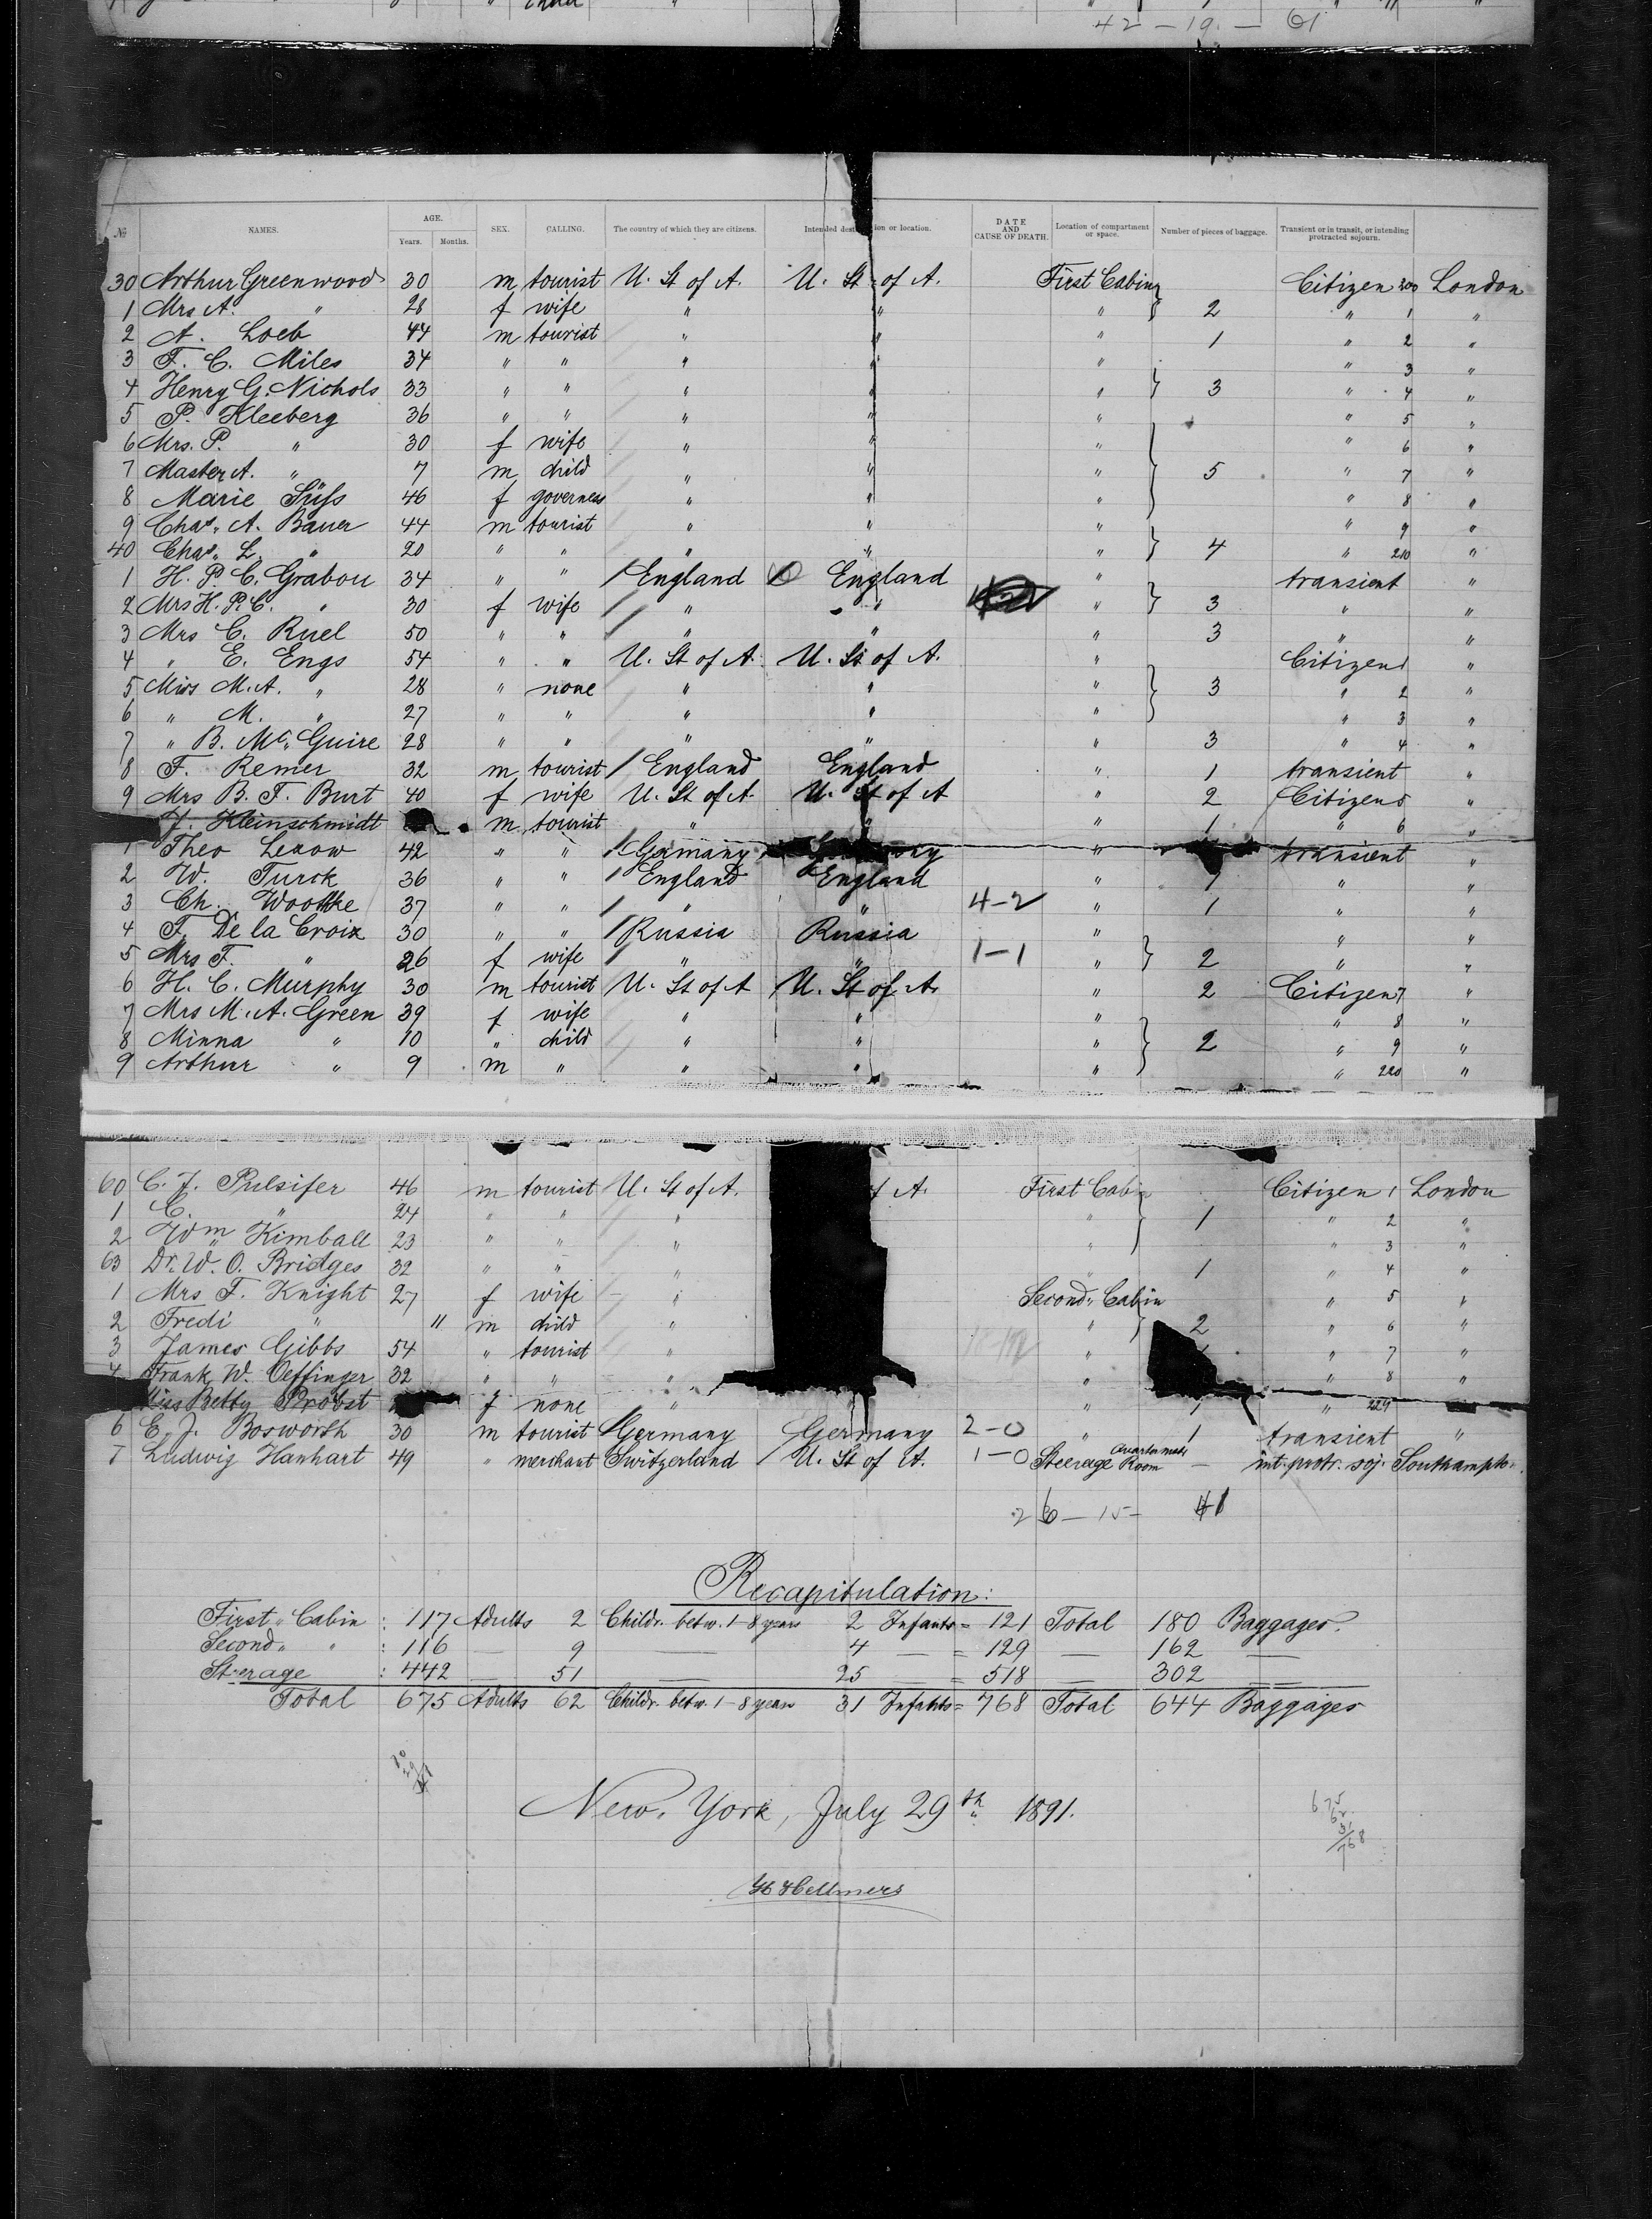 child " " " " "
42 - 19 - 61
№ NAMES. AGE. Years. Months. SEX. CALLING. The country of which they are citizens. Intended dest ion or location. DATE AND CAUSE OF DEATH. Location of compartment or space. Number of pieces of baggage. Transient or in transit, or intending protracted sojourn.
30 Arthur Greenwood 30 m tourist U. St of A. U. St of A. First Cabin Citizen 200 London
1 Mrs A. " 28 f wife " " " 2 " 1 "
2 A. Loeb 44 m tourist " " " 1 " 2 "
3 F. C. Miles 34 " " " " " " 3 "
4 Henry G. Nichols 33 " " " " " 3 " 4 "
5 P. Kleeberg 36 " " " " " " 5 "
6 Mrs. P. " 30 f wife " " " " 6 "
7 Master A. " 7 m child " " " 5 " 7 "
8 Marie Süss 46 f governess " " " " 8 "
9 Chas. A. Bauer 44 m tourist " " " " 9 "
40 Chas. L. " 20 " " " " " 4 " 210 "
1 H. P. C. Grabou 34 " " England England " transient "
2 Mrs H. P. C. " 30 f wife " " " 3 " "
3 Mrs C. Ruel 50 " " " " " 3 " "
4 " E. Engs 54 " " U. St of A. U. St of A. " Citizen 1 "
5 Miss M. A. " 28 " none " " " 3 " 2 "
6 " M. " 27 " " " " " " 3 "
7 " B. Mc. Guire 28 " " " " " 3 " 4 "
8 F. Remer 32 m tourist England England " 1 transient "
9 Mrs B. F. Burt 40 f wife U. St of A. U. St of A " 2 Citizen 5 "
J. Kleinschmidt m tourist " " " 1 " 6 "
1 Theo Lexow 42 " " Germany " transient "
2 W. Turck 36 " " England England " 1 " "
3 Ch. 37 " " " " 4-2 " 1 " "
4 F. De la Croix 30 " " Russia Russia " " "
5 Mrs F. " 26 f wife " " 1-1 " 2 " "
6 H. C. Murphy 30 m tourist U. St of A U. St of A. " 2 Citizen 7 "
7 Mrs M. A. Green 39 f wife " " " " 8 "
8 Minna " 10 " child " " " 2 " 9 "
9 Arthur " 9 m " " " " " 220 "
60 C. J. Pulsifer 46 m tourist U. St of A. f A. First Cabin Citizen 1 London
1 C. " 24 " " " " 1 " 2 "
2 Wm Kimball 23 " " " " " 3 "
63 Dr. W. O. Bridges 32 " " " " 1 " 4 "
1 Mrs F. Knight 27 f wife " Second " Cabin " 5 "
2 Fredi " 11 m child " " 2 " 6 "
3 James Gibbs 54 " tourist " " " 7 "
4 Frank W. Oeffinger 32 " " " " " 8 "
Miss Betty Probst f none " " 1 " 229
6 E. J. Bosworth 30 m tourist Germany Germany 2-0 " 1 transient "
7 Ludwig Hanhart 49 " merchant Switzerland U. St of A. 1-0 Steerage Quartermstr Room — int. protr. soj. Southampton
26 - 15 - 41
Recapitulation:
First " Cabin : 117 Adults 2 Childr. betw. 1-8 years 2 Infants = 121 Total 180 Baggages.
Second " " : 116 — 9 — 4 — = 129 — 162 —
Steerage : 442 — 51 — 25 — = 518 — 302 —
Total 675 Adults 62 Childr. betw. 1-8 years 31 Infants = 768 Total 644 Baggages
New York, July 29th 1891.
675
62
31
768
H Hellmers